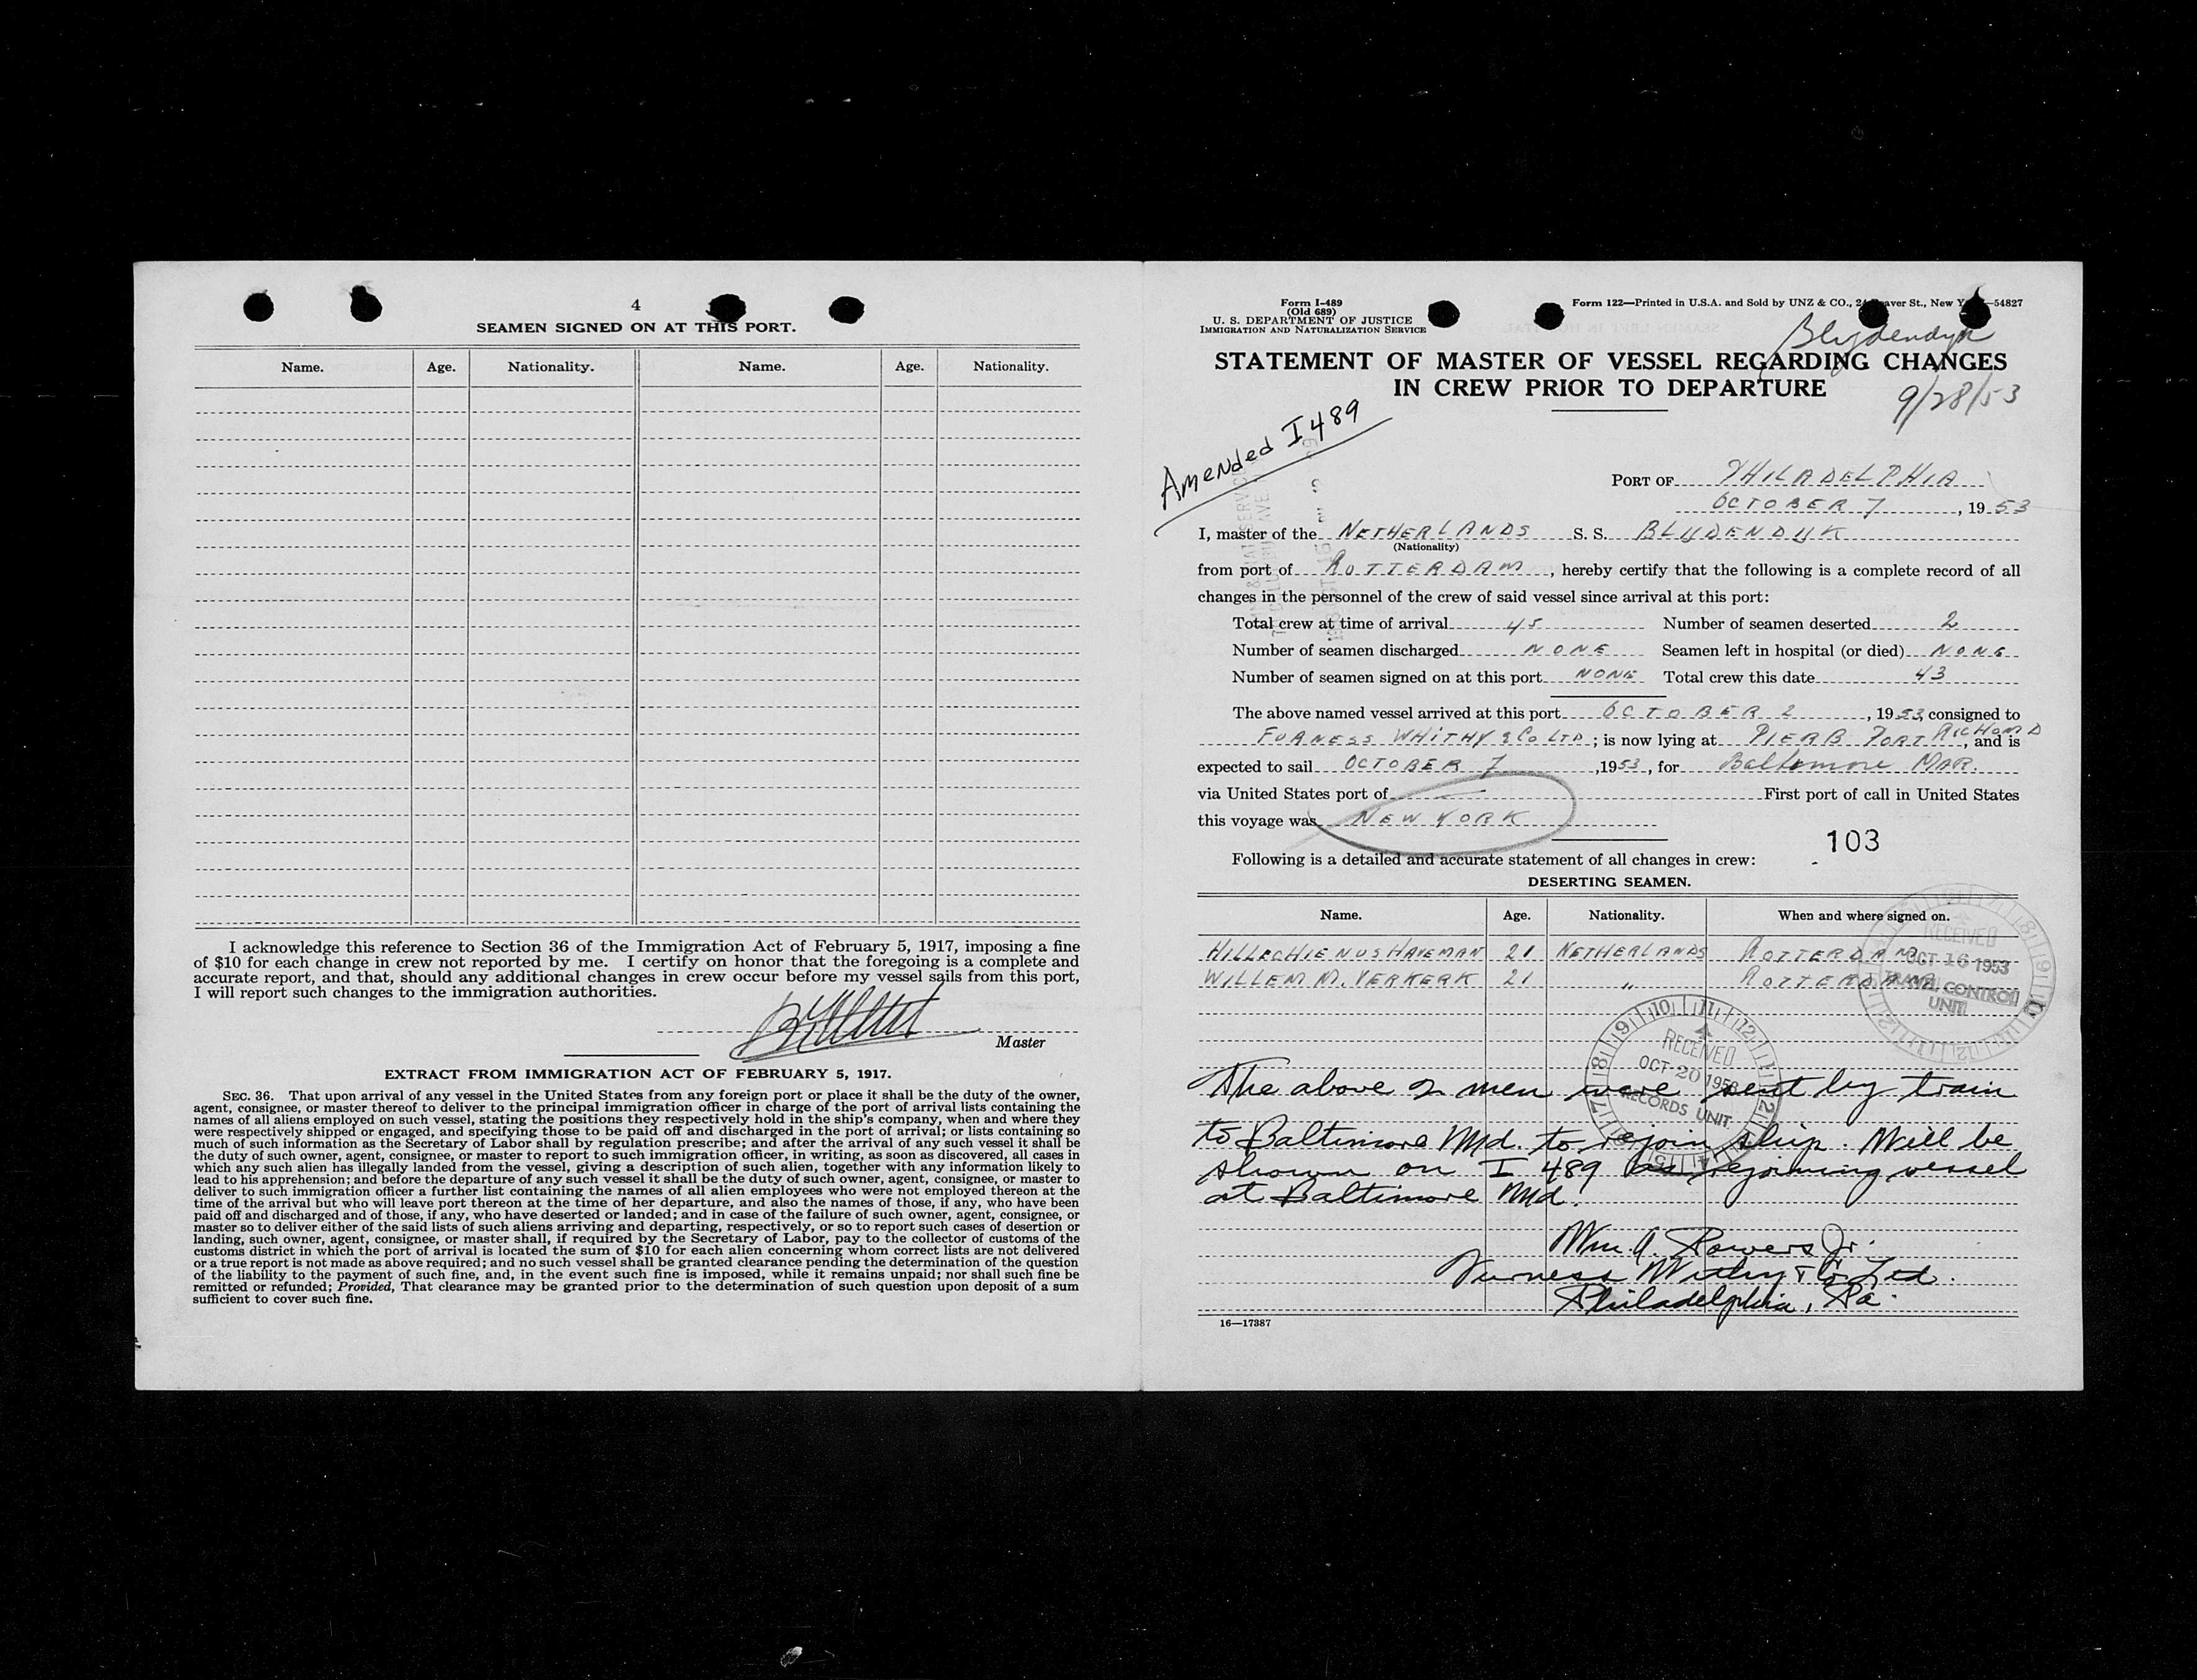 4
SEAMEN SIGNED ON AT THIS PORT.
Name. Age. Nationality. Name. Age. Nationality.
I acknowledge this reference to Section 36 of the Immigration Act of February 5, 1917, imposing a fine
of $10 for each change in crew not reported by me. I certify on honor that the foregoing is a complete and
accurate report, and that, should any additional changes in crew occur before my vessel sails from this port,
I will report such changes to the immigration authorities.
Master
EXTRACT FROM IMMIGRATION ACT OF FEBRUARY 5, 1917.
SEC. 36. That upon arrival of any vessel in the United States from any foreign port or place it shall be the duty of the owner,
agent, consignee, or master thereof to deliver to the principal immigration officer in charge of the port of arrival lists containing the
names of all aliens employed on such vessel, stating the positions they respectively hold in the ship's company, when and where they
were respectively shipped or engaged, and specifying those to be paid off and discharged in the port of arrival; or lists containing so
much of such information as the Secretary of Labor shall by regulation prescribe; and after the arrival of any such vessel it shall be
the duty of such owner, agent, consignee, or master to report to such immigration officer, in writing, as soon as discovered, all cases in
which any such alien has illegally landed from the vessel, giving a description of such alien, together with any information likely to
lead to his apprehension; and before the departure of any such vessel it shall be the duty of such owner, agent, consignee, or master to
deliver to such immigration officer a further list containing the names of all alien employees who were not employed thereon at the
time of the arrival but who will leave port thereon at the time of her departure, and also the names of those, if any, who have been
paid off and discharged and of those, if any, who have deserted or landed; and in case of the failure of such owner, agent, consignee, or
master so to deliver either of the said lists of such aliens arriving and departing, respectively, or so to report such cases of desertion or
landing, such owner, agent, consignee, or master shall, if required by the Secretary of Labor, pay to the collector of customs of the
customs district in which the port of arrival is located the sum of $10 for each alien concerning whom correct lists are not delivered
or a true report is not made as above required; and no such vessel shall be granted clearance pending the determination of the question
of the liability to the payment of such fine, and, in the event such fine is imposed, while it remains unpaid; nor shall such fine be
remitted or refunded; Provided, That clearance may be granted prior to the determination of such question upon deposit of a sum
sufficient to cover such fine.
Form I-489
(Old 689)
U. S. DEPARTMENT OF JUSTICE
IMMIGRATION AND NATURALIZATION SERVICE
Form 122—Printed in U.S.A. and Sold by UNZ & CO., St., New —54827
Blydendyk
STATEMENT OF MASTER OF VESSEL REGARDING CHANGES
IN CREW PRIOR TO DEPARTURE
9/28/53
Amended I 489
PORT OF PHILADELPHIA
OCTOBER 7, 1953
I, master of the NETHERLANDS S. S. BLYDENDYK
(Nationality)
from port of ROTTERDAM, hereby certify that the following is a complete record of all
changes in the personnel of the crew of said vessel since arrival at this port:
Total crew at time of arrival 45 Number of seamen deserted 2
Number of seamen discharged NONE Seamen left in hospital (or died) NONE
Number of seamen signed on at this port NONE Total crew this date 43
The above named vessel arrived at this port OCTOBER 2, 1953, consigned to
FURNESS WHITHY & Co LTD; is now lying at PIER B PORT RICHOMD, and is
expected to sail OCTOBER 7, 1953, for Baltemore MAR.
via United States port of — First port of call in United States
this voyage was NEW YORK
103
Following is a detailed and accurate statement of all changes in crew:
DESERTING SEAMEN.
Name. Age. Nationality. When and where signed on.
HILLECHIENUS HAVEMAN 21 NETHERLANDS ROTTERDAM
WILLEM M. VERKERK 21 " ROTTERDAM
RECEIVED
OCT 16 1953
TRAVEL CONTROL
UNIT
RECEIVED
OCT 20 1953
RECORDS UNIT
The above 2 men were sent by train
to Baltimore Md. to rejoin ship. Will be
shown on I 489 as rejoining vessel
at Baltimore Md.
Wm. A. Powers Jr.
Furness Withy & Co. Ltd.
Philadelphia, Pa.
16—17387